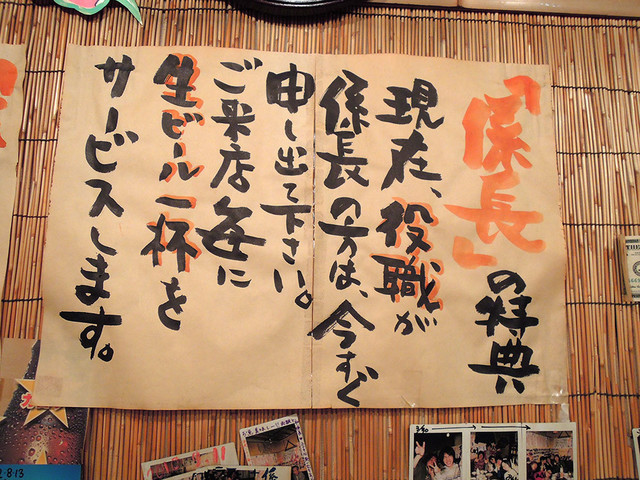 「係長」の特典
現在、役職が
係長の方は、今すぐ
申し出て下さい。
ご来店毎に
生ビール一杯を
サービスします。
8.13